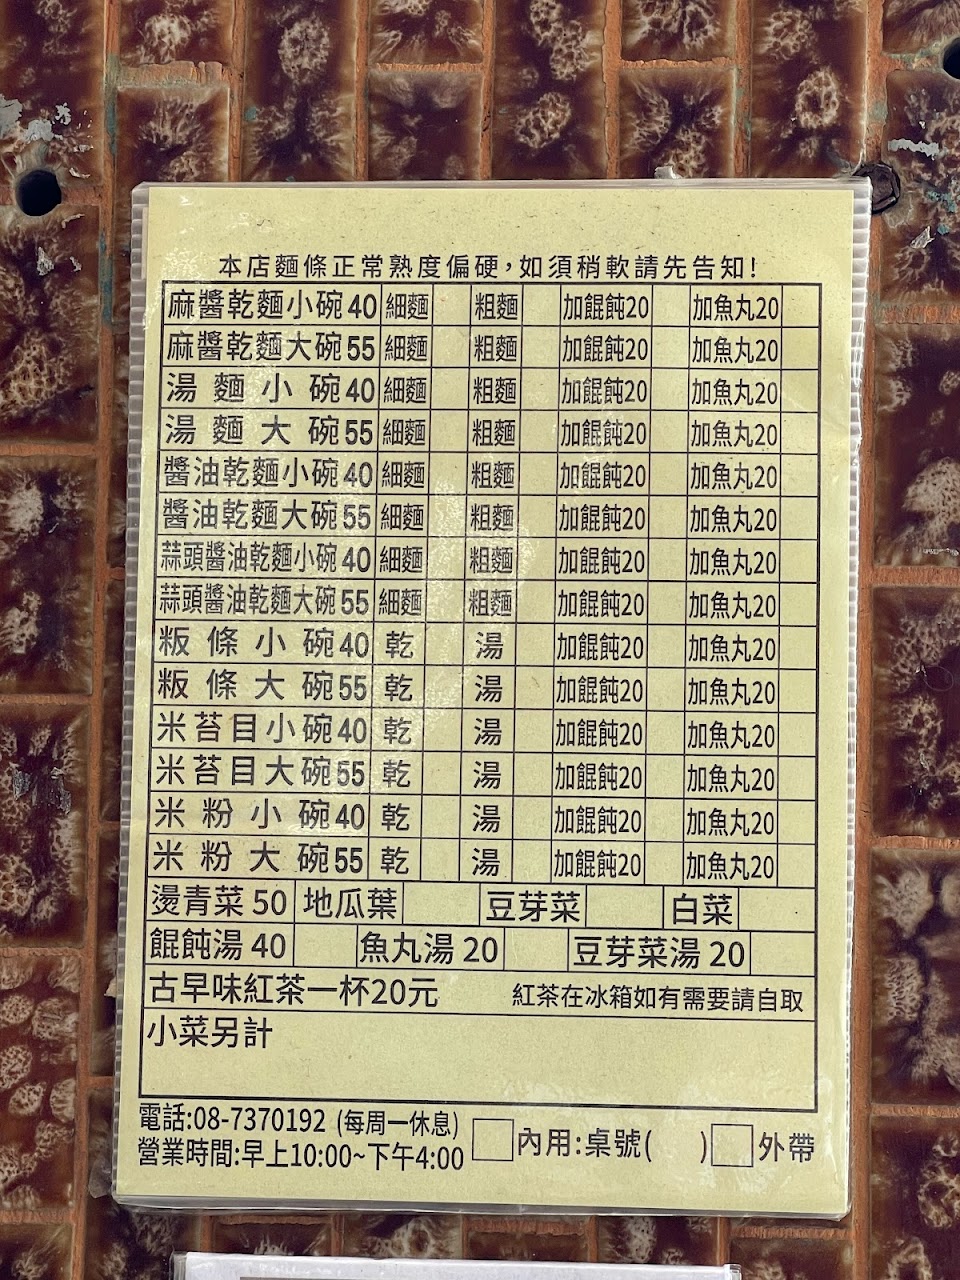 本店麵條正常熟度偏硬,如須稍軟請先告知!
麻醬乾麵小碗 40 細麵 粗麵 加餛飩20 加魚丸20
麻醬乾麵大碗 55 細麵 粗麵 加餛飩20 加魚丸20
湯麵小碗 40 細麵 粗麵 加餛飩20 加魚丸20
湯麵大碗 55 細麵 粗麵 加餛飩20 加魚丸20
醬油乾麵小碗 40 細麵 粗麵 加餛飩20 加魚丸20
醬油乾麵大碗 55 細麵 粗麵 加餛飩20 加魚丸20
蒜頭醬油乾麵小碗 40 細麵 粗麵 加餛飩20 加魚丸20
蒜頭醬油乾麵大碗 55 細麵 粗麵 加餛飩20 加魚丸20
粄條小碗 40 乾 湯 加餛飩20 加魚丸20
粄條大碗 55 乾 湯 加餛飩20 加魚丸20
米苔目小碗 40 乾 湯 加餛飩20 加魚丸20
米苔目大碗 55 乾 湯 加餛飩20 加魚丸20
米粉小碗 40 乾 湯 加餛飩20 加魚丸20
米粉大碗 55 乾 湯 加餛飩20 加魚丸20
燙青菜 50 地瓜葉 豆芽菜 白菜
餛飩湯 40 魚丸湯 20 豆芽菜湯 20
古早味紅茶一杯20元 紅茶在冰箱如有需要請自取
小菜另計
電話:08-7370192 (每周一休息)
營業時間:早上10:00~下午4:00
內用:桌號( ) 外帶